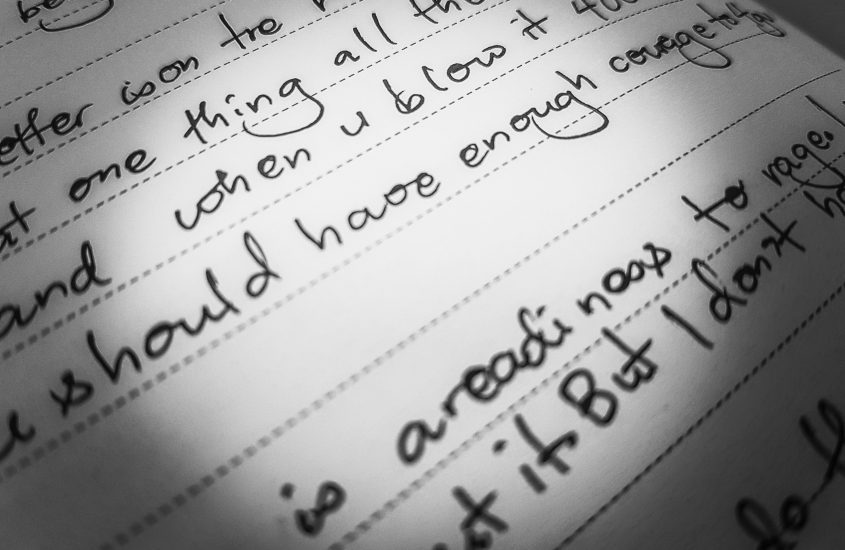 is on the
one thing all
and when u blow it
should have enough courage to
is a readiness to rage.
it But I don't